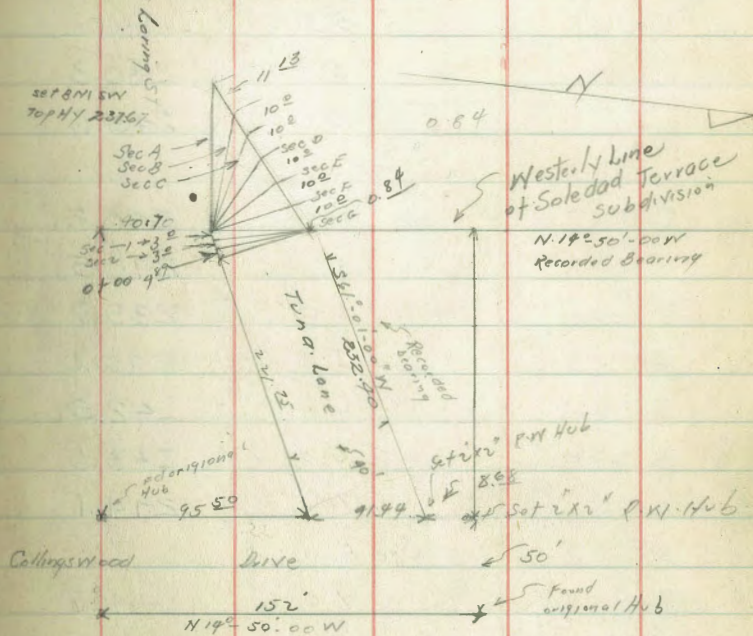 Loring St
11 13
set BM SW
Top Hy 237.67
N
0.84
10 0
10 0
Sec A
Sec B
Sec C
Sec D
10 0
Sec E
10 0
Sec F
10 0
Sec G
0.84
Westerly Line
of Soledad Terrace
Subdivision
N.14°-50'-00 W
Recorded Bearing
Sec - 1 + 3 0
Sec 2 - 3 0
0+00
Tuna. Lane
S41°-01'-00" W
232.40
Recorded
bearing
40'
Set 2"x2" P.W Hub
8.68
origional
Hub
95 50
91.44
Set 2"x2" P.W. Hub
Collingswood Drive
50'
152'
N 14°- 50'. 00 W
Found
origional Hub